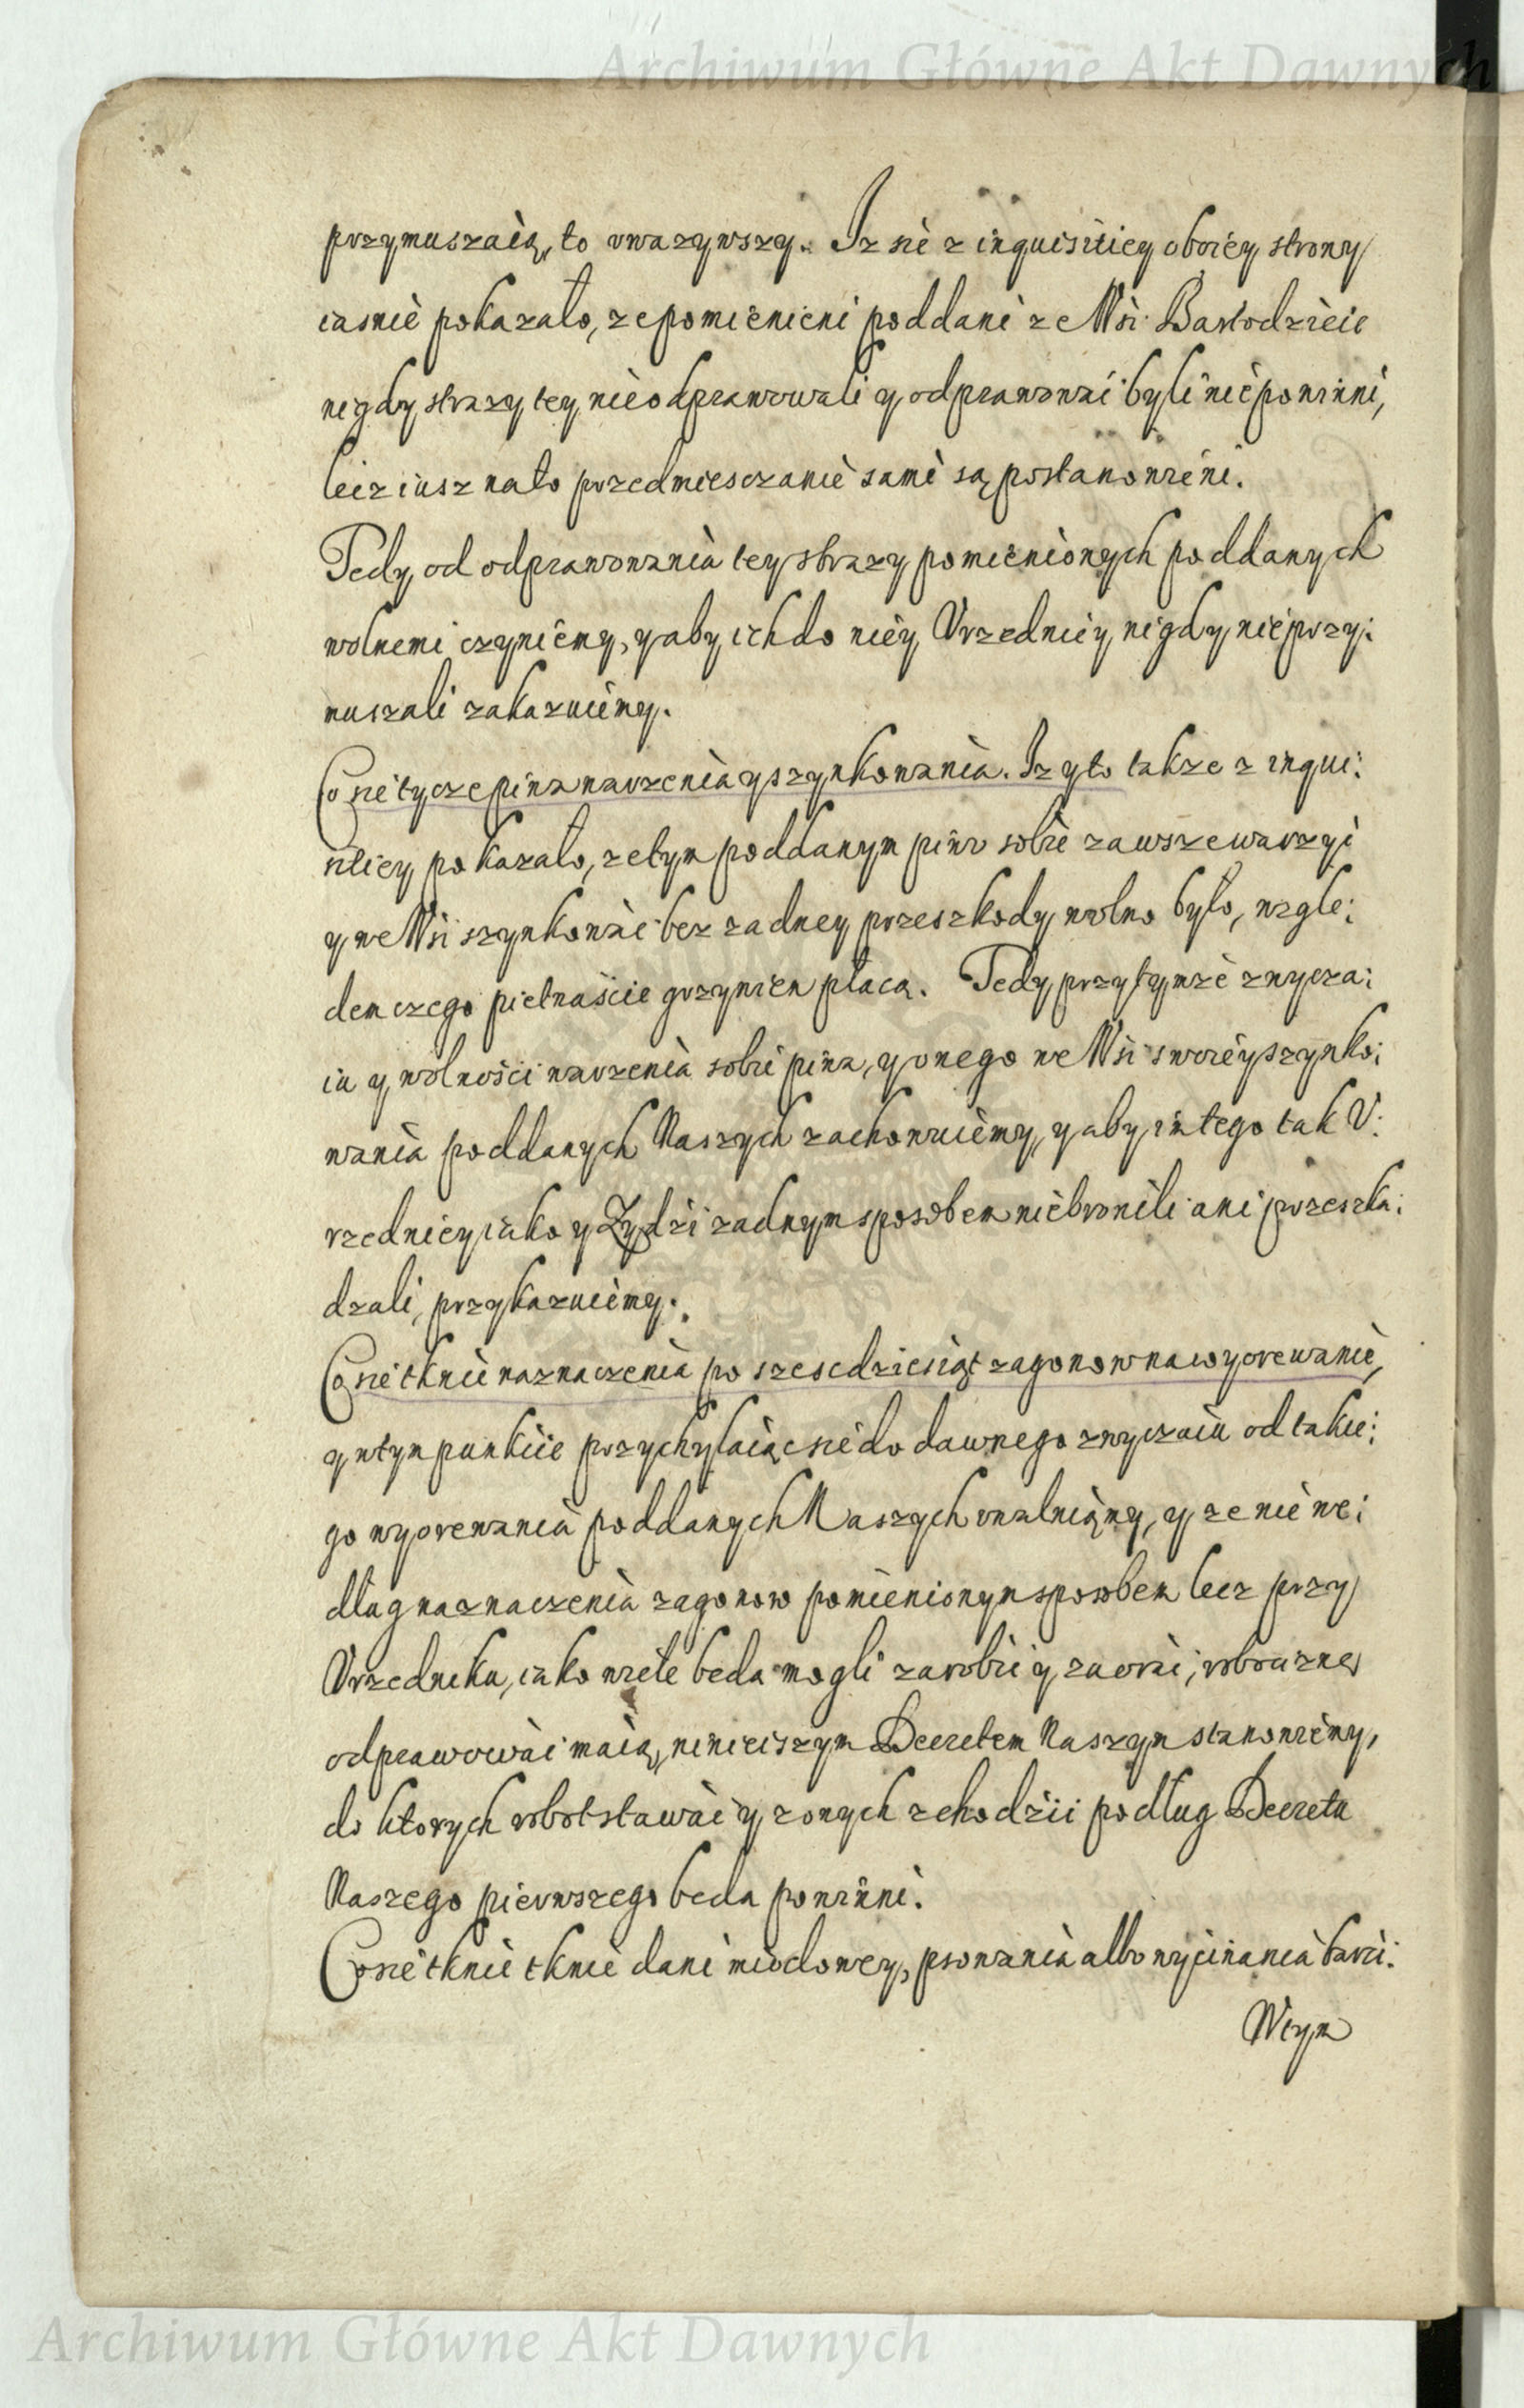 Archiwum Główne Akt Dawnych
przymuszaią, to uwazywszy. Iz sie z inquisitiey oboiey strony
iasnie pokazało, ze pomienieni poddani ze Wsi Bartodzieie
nigdy strazy tey nie odprawowali y odprawowac byli nie powinni,
lecz iusz na to przedmiesczanie sami są postanowieni.
Tedy od odprawowania tey strazy pomienionych poddanych
wolnemi czyniemy, y aby ich do niey Vrzednicy nigdy nie przy:
muszali zakazuiemy.
Co sie tycze piwa warzenia y szynkowania. Iz y to takze z inqui:
sitiey pokazało, ze tym poddanym piwo sobie zawsze warzyc
y we Wsi szynkowac bez zadney przeszkody wolno było, wzgle:
dem czego pietnascie grzywien płacą. Tedy przy tymze zwycza:
iu y wolnosci warzenia sobie piwa, y onego we Wsi swoiey szynko:
wania poddanych Naszych zachowuiemy, y aby im tego tak V:
rzednicy iako y Zydzi zadnym sposobem nie bronili ani przeszka:
dzali, przykazuiemy.
Co sie tknie naznaczenia po szescdziesiąt zagonow na wyorewanie,
y w tym punkcie przychylaiąc sie do dawnego zwyczaiu od takie:
go wyorewania poddanych Naszych uwalniamy, y ze nie we:
dług naznaczenia zagonow pomienionym sposobem lecz przy
Vrzedniku, iako wiele beda mogli zarobic y zaorac, robocizne
odprawowac maią, ninieiszym Decretem Naszym stanowiemy,
do ktorych robot stawac y z onych zchodzic podług Decretu
Naszego pierwszego beda powinni.
Co sie tknie tknie dani miodowey, psowania albo wycinania barci.
Wtym
Archiwum Główne Akt Dawnych